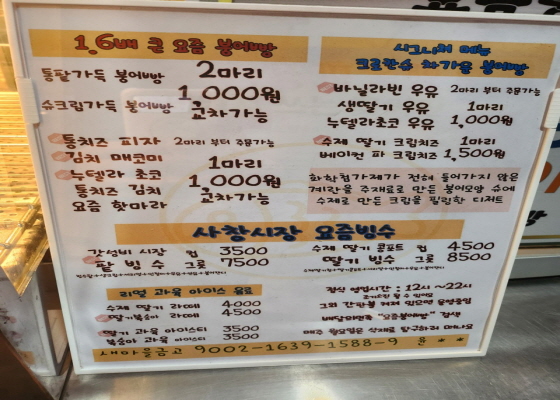 1.6배 큰 요즘 붕어빵
통팥가득 붕어빵 2마리
1,000원
슈크림가득 붕어빵 교차가능
통치즈 피자 2마리 부터 주문가능
김치 매코미 1마리
누텔라 초코 1,000원
통치즈 김치 교차가능
요즘 핫마라
시그니처 메뉴
크로칸슈 차가운 붕어빵
바닐라빈 우유 2마리 부터 주문가능
생딸기 우유 1마리
누텔라초코 우유 1,000원
수제 딸기 크림치즈 1마리
베이컨 파 크림치즈 1,500원
화학첨가제가 전혀 들어가지 않은
계란을 주재료로 만든 붕어모양 슈에
수제로 만든 크림을 필링한 디저트
사창시장 요즘빙수
갓성비 시장 컵 3500
팥 빙수 그릇 7500
수제 딸기 콤포트 컵 4500
딸기 빙수 그릇 8500
리얼 과육 아이스 음료
수제 딸기 라떼 4000
딸기복숭아 라떼 4500
딸기 과육 아이스티 3500
복숭아 과육 아이스티 3500
정식 영업시간 : 12시~22시
조기소진 될 수 있어요
배달어플은 "요즘붕어빵" 검색
매주 월요일은 식재료 탐구하러 떠나요
새마을금고 9002-1639-1588-9 윤**